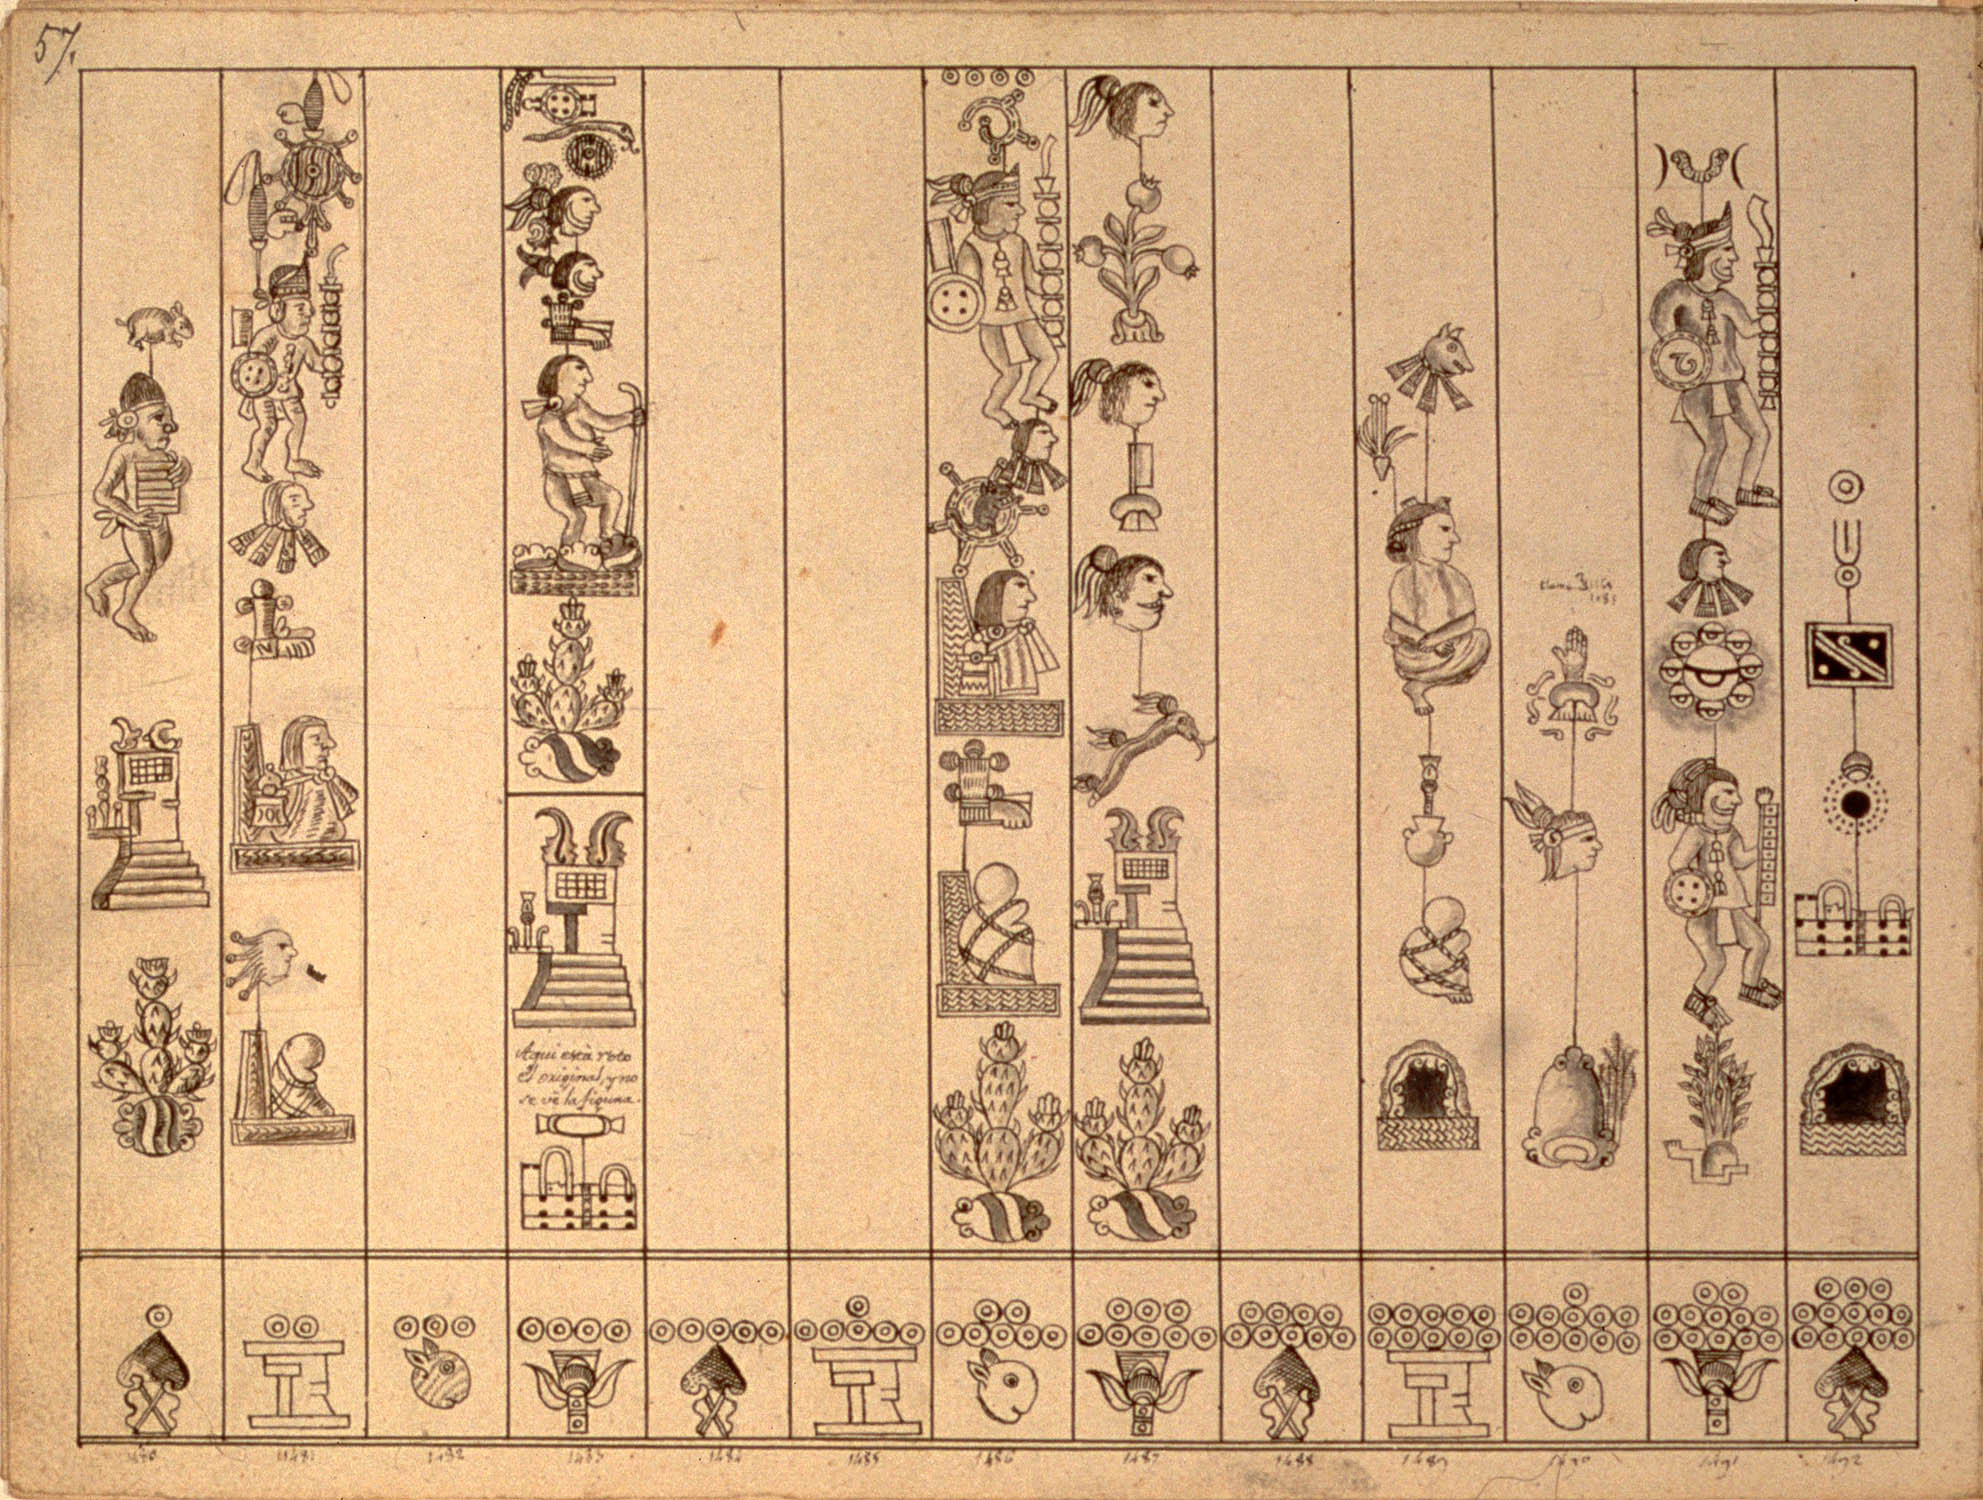 57.
Aqui està roto
el original, y no
se vè la figura.
1480
1481
1482
1483
1484
1485
1486
1487
1488
1489
1490
1491
1492